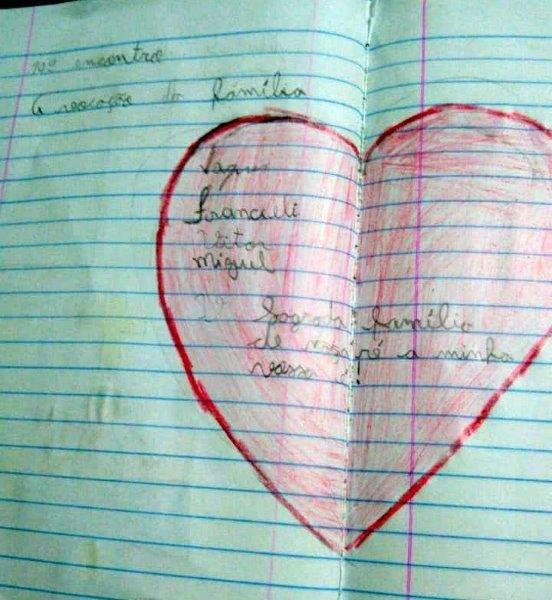 10º encontro
A vocação da Família
Franciele
Vitor
Miguel
2º Sagrada família
de nazaré a minha
vossa